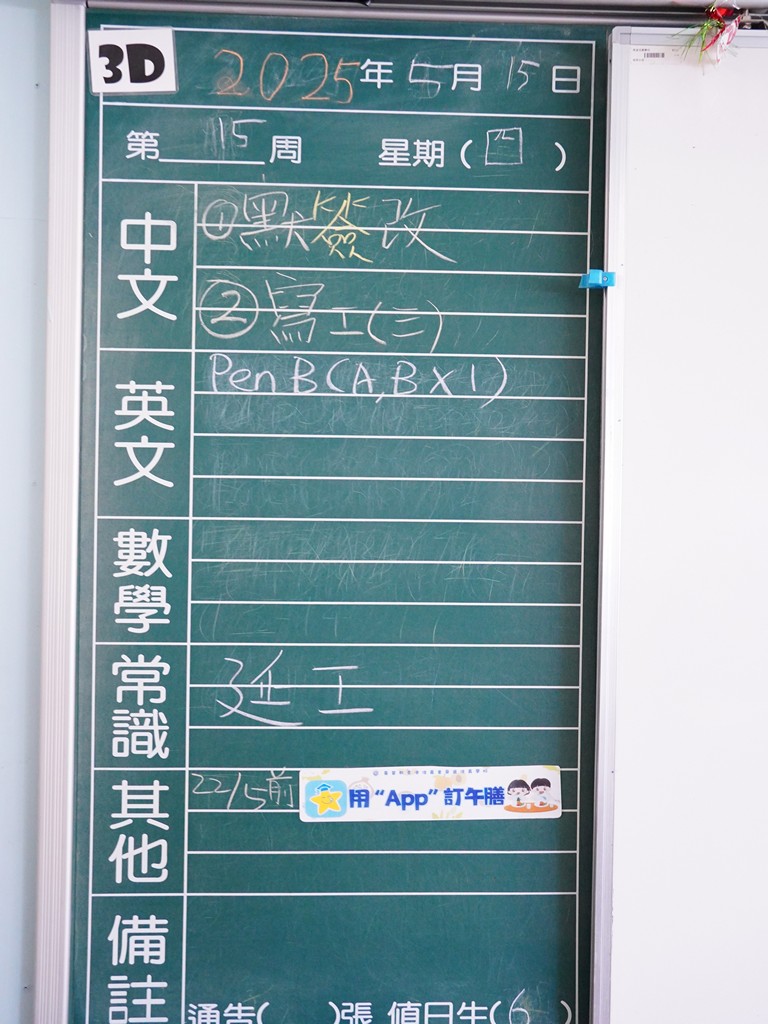 3D
2025年5月15日
第15周 星期(四)
中文
①默簽改
②寫工(三)
英文
Pen B (A,B X 1)
數學
常識
延工
其他
22/5前
用“App”訂午膳
備註
通告( )張 值日生(6)